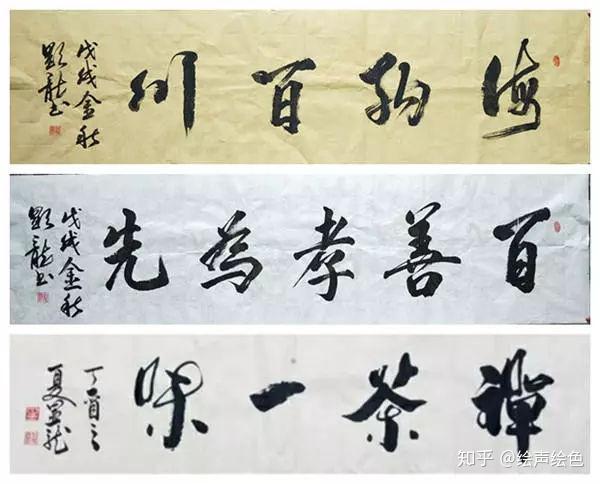 海纳百川
戊戌金秋
顯龙书
百善孝為先
戊戌金秋
顯龍书
禪茶一味
丁酉之
夏显龙
知乎 @绘声绘色